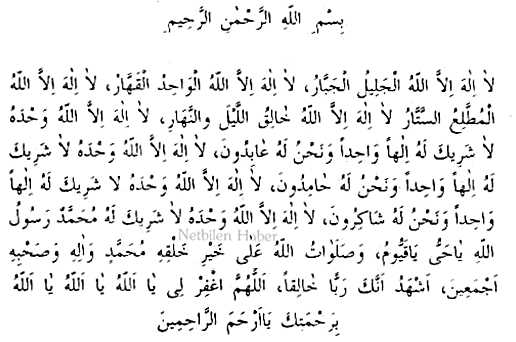 بِسْمِ اللّٰهِ الرَّحْمٰنِ الرَّحِيمِ
لاٰ اِلٰهَ اِلاَّ اللّٰهُ الْجَلِيلُ الْجَبَّارُ، لاٰ اِلٰهَ اِلاَّ اللّٰهُ الْوَاحِدُ الْقَهَّارْ، لاٰ اِلٰهَ اِلاَّ اللّٰهُ
الْمُطَّلِعُ السَّتَّارُ لاٰ اِلٰهَ اِلاَّ اللّٰهُ خٰالِقُ اللَّيْلَ والنَّهَارِ، لاٰ اِلٰهَ اِلاَّ اللّٰهُ وَحْدَهُ
لاٰ شَرِيكَ لَهُ اِلٰهاً وَاحِداً وَنَحْنُ لَهُ عٰابِدُونَ، لاٰ اِلٰهَ اِلاَّ اللّٰهُ وَحْدَهُ لاٰ شَرِيكَ
لَهُ اِلٰهاً وَاحِداً وَنَحْنُ لَهُ حٰامِدُونَ، لاٰ اِلٰهَ اِلاَّ اللّٰهُ وَحْدَهُ لاٰ شَرِيكَ لَهُ اِلٰهاً
وَاحِداً وَنَحْنُ لَهُ شَاكِرُونَ، لاٰ اِلٰهَ اِلاَّ اللّٰهُ وَحْدَهُ لاٰ شَرِيكَ لَهُ مُحَمَّدٌ رَسُولُ
Netbilen Haber
اللّٰهِ يٰاحَىُّ يٰاقَيُّومُ، وَصَلَوٰاتُ اللّٰهُ عَلٰى خَيْرِ خَلْقِهِ مُحَمَّدٍ وَاٰلِهِ وَصَحْبِهِ
اَجْمَعِينَ، اَشْهَدُ اَنَّكَ رَبًّا خٰالِقاً، اَللّٰهُمَّ اغْفِرْ لِى يٰا اَللّٰهُ يٰا اَللّٰهُ يٰا اَللّٰهُ
بِرَحْمَتِكَ يٰااَرْحَمَ الرَّاحِمِينَ